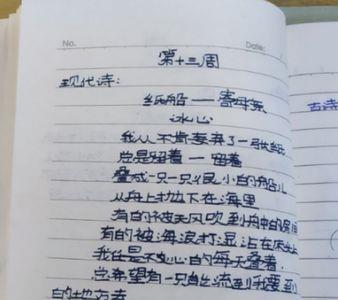 No.
Date:
第十三周
现代诗:
古诗
纸船——寄母亲
冰心
我从不肯妄弃了一张纸
总是留着——留着
叠成一只一只很小的船儿
从舟上抛下在海里
有的被天风吹到舟中的窗间
有的被海浪打湿沾在船头上
我任是不灰心的每天叠着
总希望有一只能流到我要到
的地方去